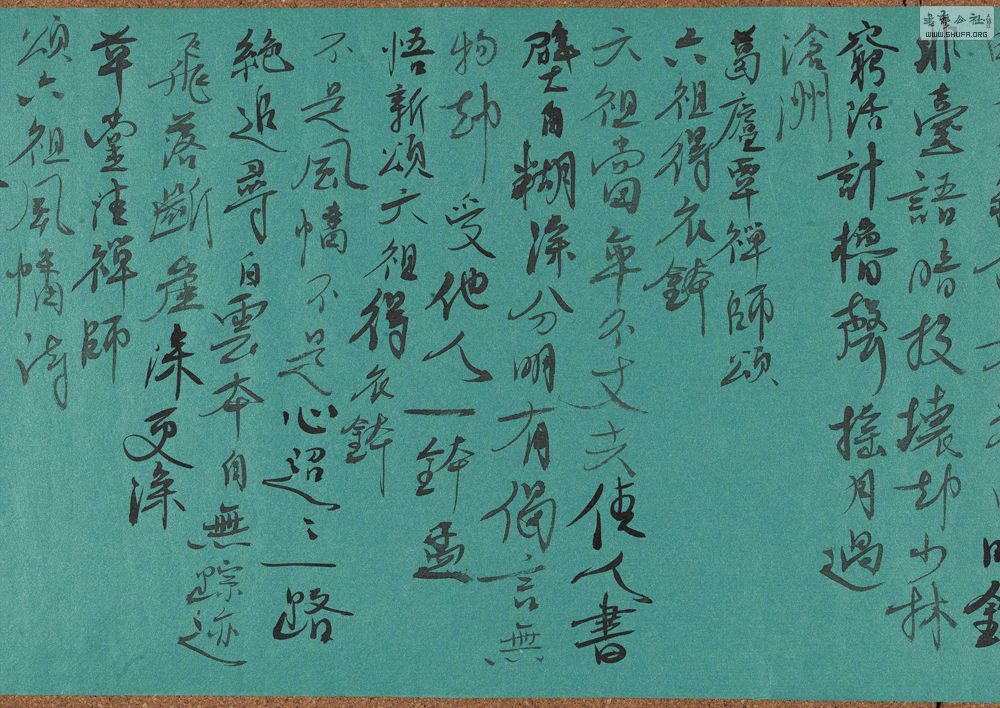 臺語暗投壞却少林
窮活計櫓聲搖月過
滄洲
葛廬覃禪師頌
六祖得衣鉢
六祖當年不丈夫倩人書
壁自糊塗分明有偈言無
物却受他人一鉢盂
悟新頌六祖得衣鉢
不是風幡不是心迢〻一路
絕追尋白雲本自無踪迹
飛落斷崖深更深
草堂清禪師
頌六祖風幡詩
書藝公社
WWW.SHUFA.ORG